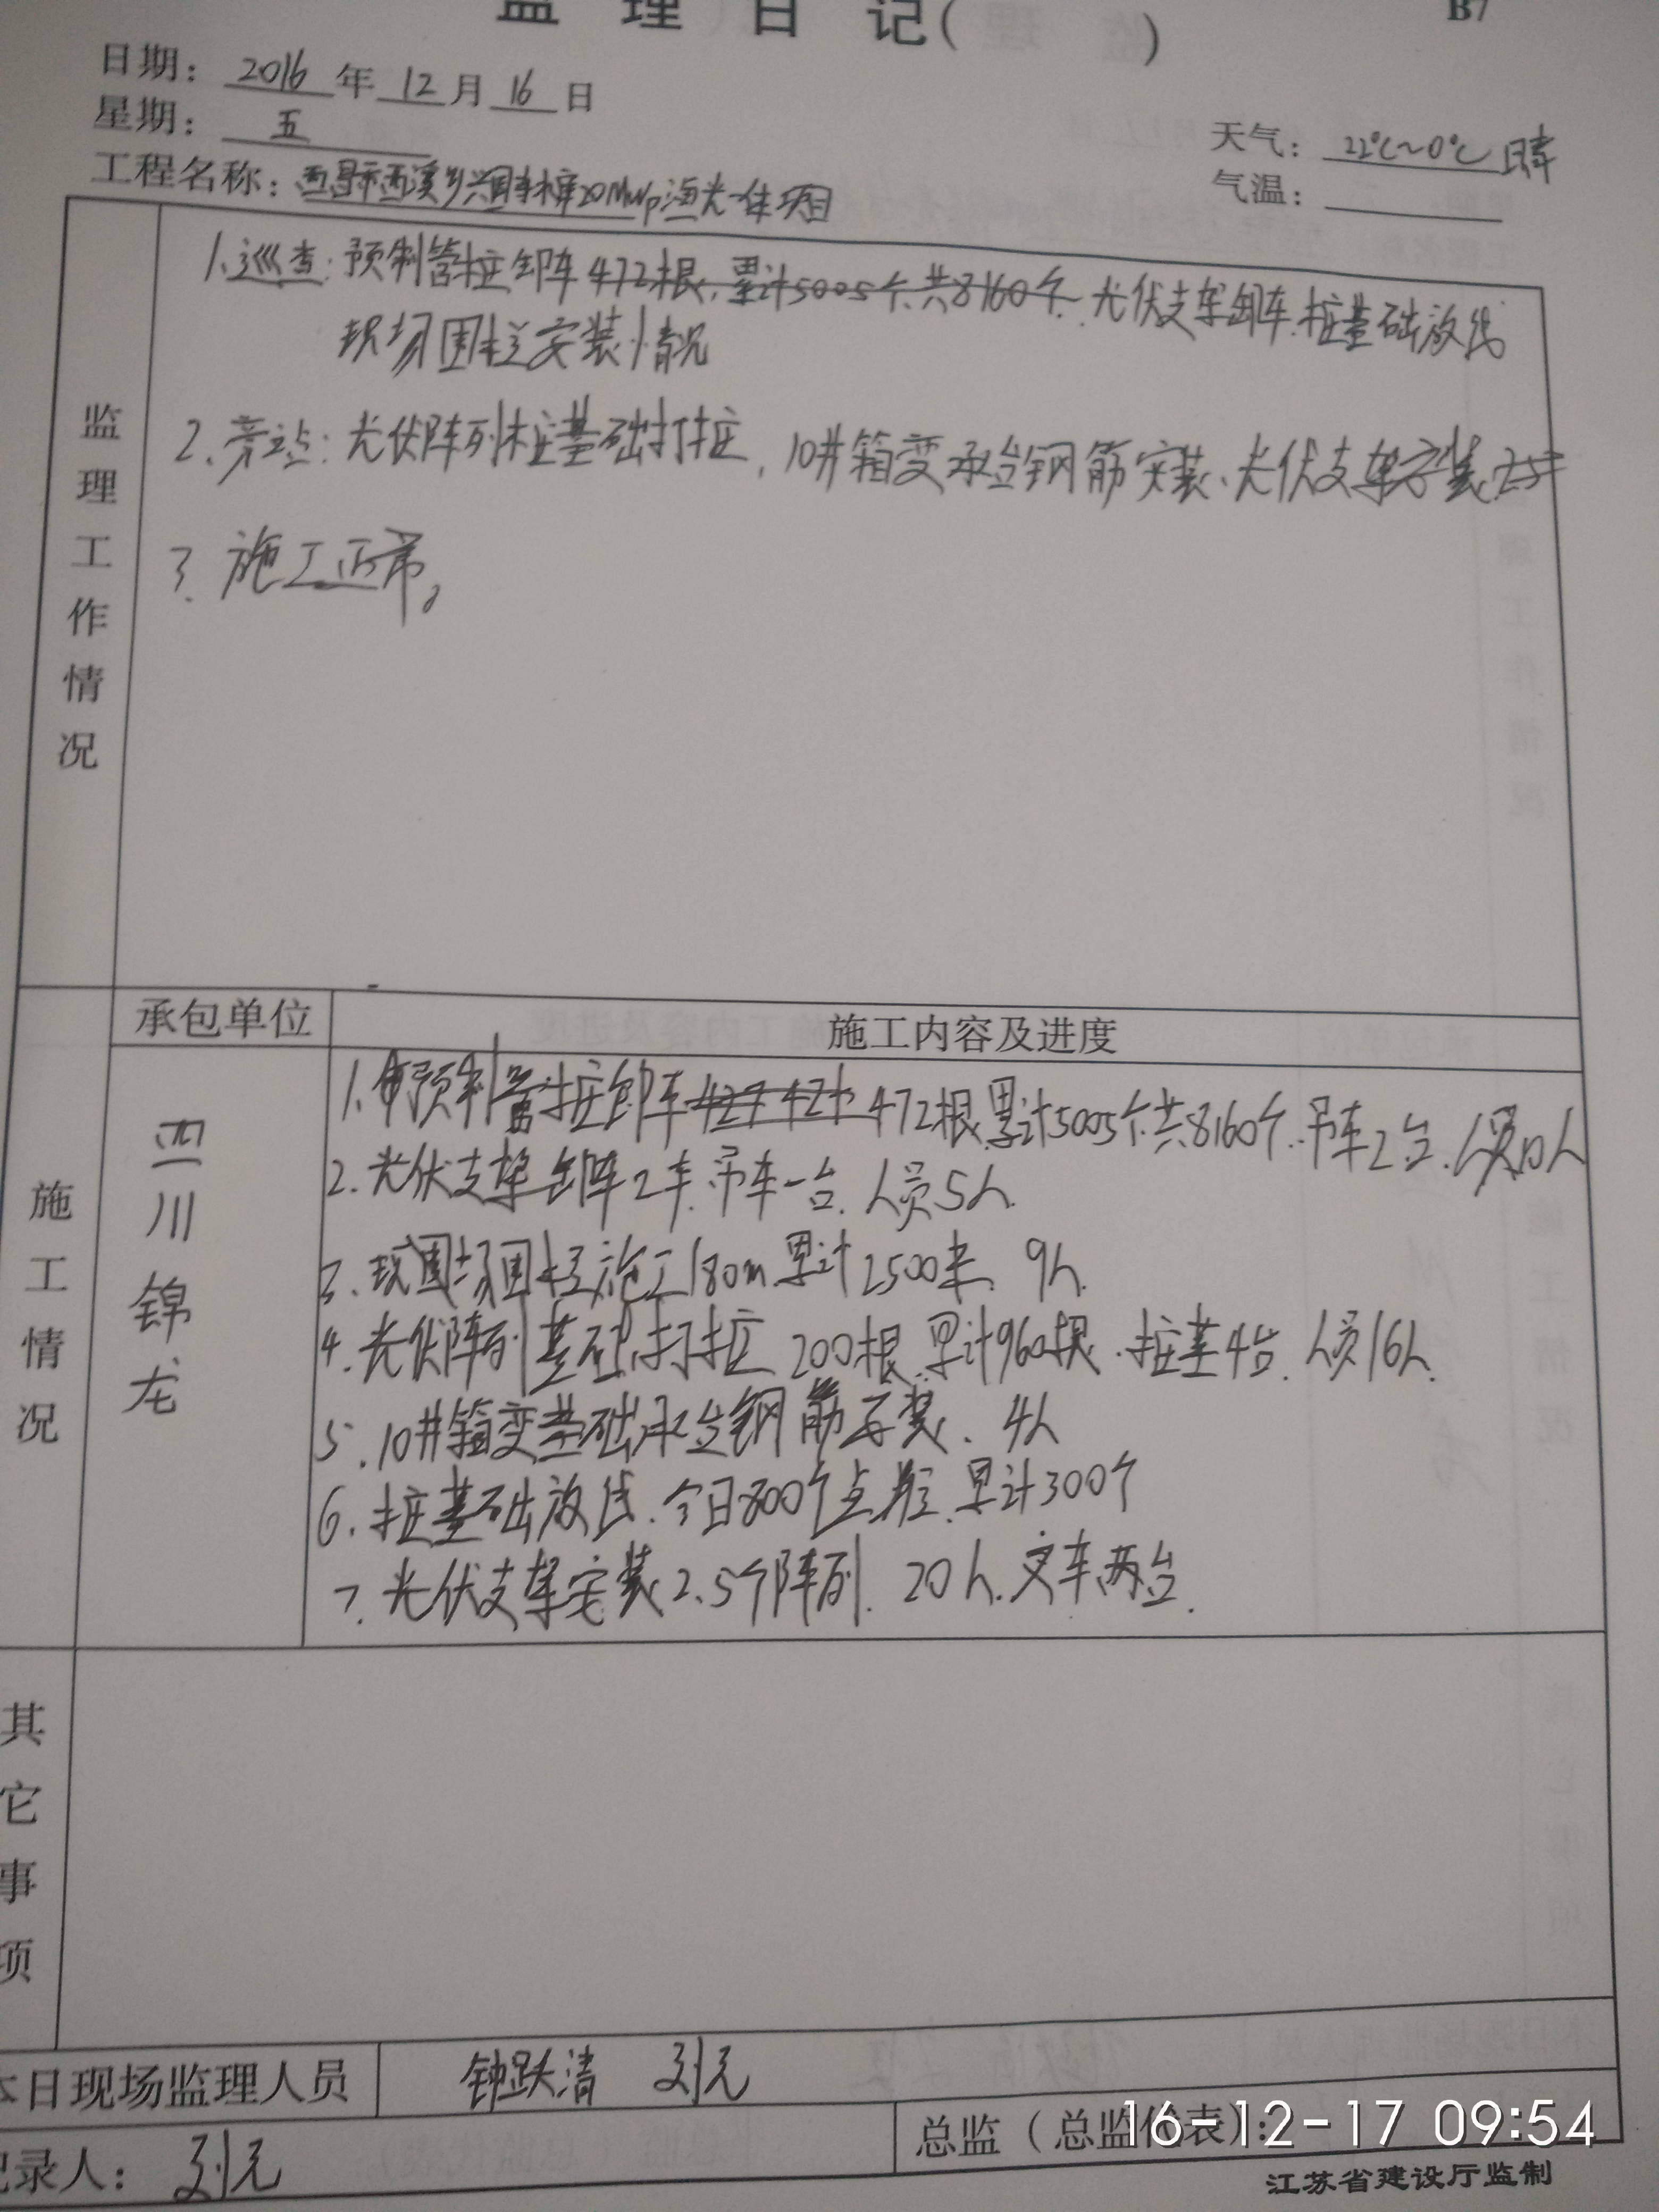 监 理 日 记( )
B7
日期: 2016 年 12 月 16 日
星期: 五
天气: 22℃~0℃ 晴
气温:
工程名称: 西昌市西溪乡兴国寺水库20MWp渔光一体项目
监理工作情况
1.巡查:预制管桩卸车472根,累计5005个共8160个.光伏支架卸车.桩基础放线
现场围栏安装情况
2.旁站:光伏阵列桩基础打桩,10#箱变承台钢筋安装、光伏支架安装
3.施工正常。
承包单位
施工内容及进度
施工情况
四川锦龙
1.预制管桩卸车 472根累计5005个共8160个.吊车2台.人员10人
2.光伏支架卸车2车.吊车一台.人员5人
3.现场围栏施工180m累计2500米.9人
4.光伏阵列基础打桩200根.累计960根.桩基4台.人员16人.
5.10#箱变基础承台钢筋安装.4人
6.桩基础放线.今日800个点.累计300个
7.光伏支架安装2.5个阵列.20人.叉车两台.
其它事项
本日现场监理人员
钟跃清 刘元
记录人: 刘元
总监(总监代表):
16-12-17 09:54
江苏省建设厅监制